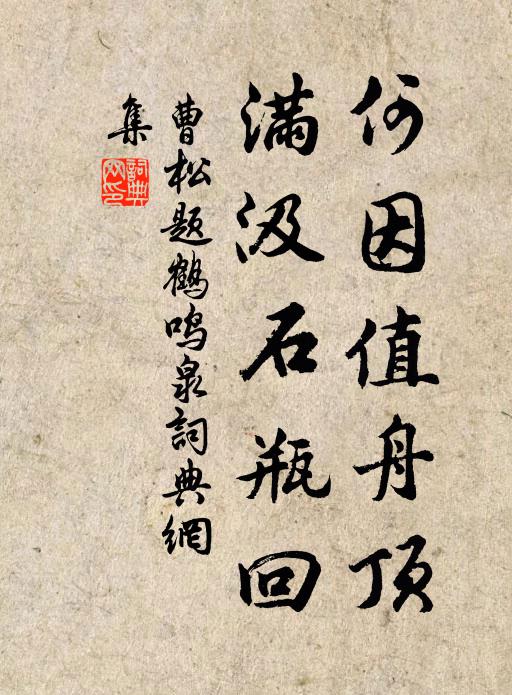 何因值舟顶
满汲石瓶回
曹松题鹤鸣泉词典網
集
詞典
网印